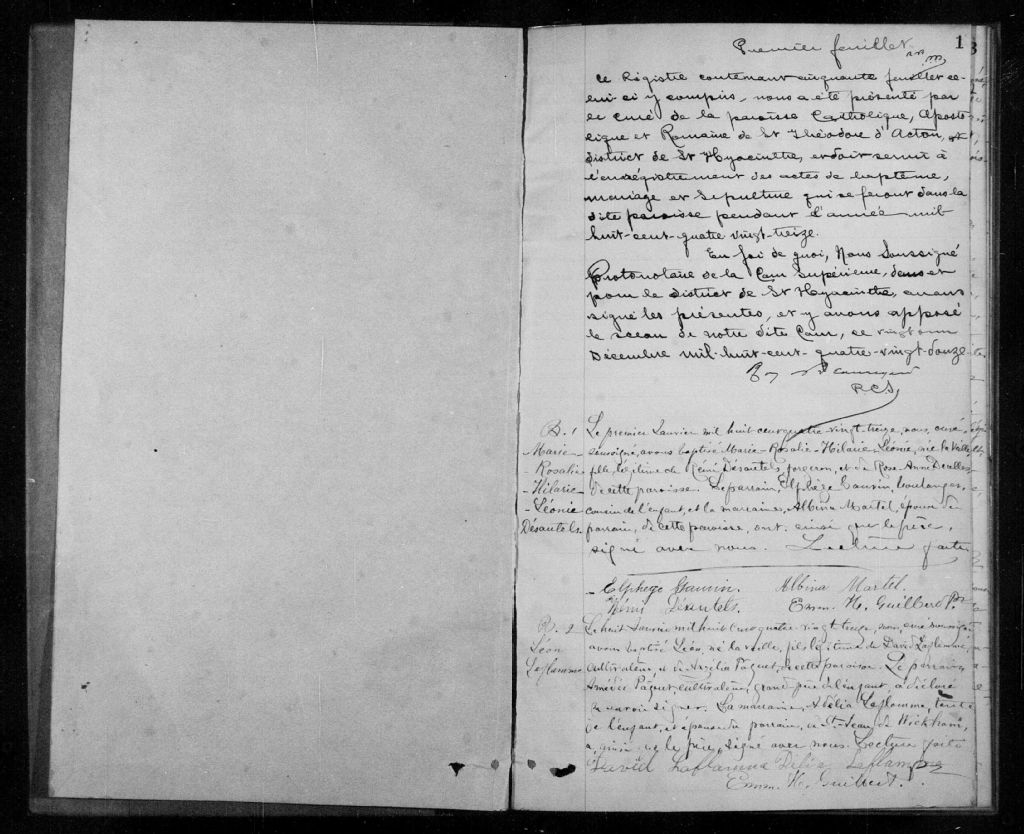 1
Premier feuillet.
Ce Régistre contenant cinquante feuillet ce-
lui ci y compris, nous a été présenté par
le curé de la paroisse Catholique, Aposto-
lique et Romaine de St Théodore d'Acton,
district de St Hyacinthe, et doit servir à
l'enrégistrement des actes de baptême,
mariage et sépulture qui se feront dans la
dite paroisse pendant l'année mil
huit-cent-quatre vingt-treize.
En foi de quoi, Nous Soussigné
Protonotaire de la Cour Supérieure, dans et
pour le district de St Hyacinthe, avons
signé les présentes, et y avons apposé
le sceau de notre dite Cour, ce vingt un
Décembre mil-huit-cent-quatre-vingt-douze
P.C.S.
B. 1
Marie-
Rosalie-
-Hilarie-
-Léonie
Désautels.
Le premier Janvier mil huit cent quatre-vingt treize, nous, curé,
soussigné, avons baptisé Marie-Rosalie-Hilarie-Léonie, née la veille,
fille légitime de Rémi Désautels, forgeron, et de Rose-Anne
de cette paroisse. Le parrain, Elphège Gauvin, boulanger,
cousin de l'enfant, et la marraine, Albina Martel, épouse du
parrain, de cette paroisse, ont, ainsi que le père,
signé avec nous. Lecture faite,
Elphege Gauvin. Albina Martel.
Rémi Désautels. Emm. H. Guilbert Ptr
B. 2
Léon
Laflamme
Le huit Janvier mil huit cent quatre vingt treize, nous, curé soussigné
avons baptisé Léon, né la veille, fils légitime de David Laflamme,
cultivateur, et de Anzélia Pâquet, de cette paroisse. Le parrain,
Amédée Pâquet, cultivateur, grand-père de l'enfant, a déclaré
ne savoir signer. La marraine, Adélia Laflamme, tante
de l'enfant, et épouse du parrain, de St. Jean de Wickham,
a, ainsi que le père, signé avec nous. Lecture faite
David Laflamme Delia Laflamme
Emm. H. Guilbert.